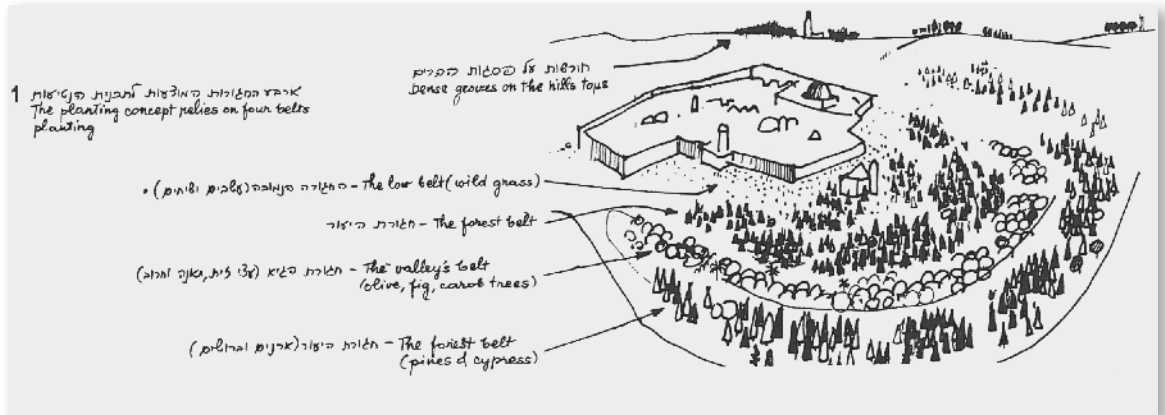 1 ארבע החגורות המוצעות לתבנית הנטיעות
The planting concept relies on four belts
planting
חורשות על פסגות ההרים
Dense groves on the hills tops
החגורה הנמוכה (עשבים ושיחים) - The low belt (wild grass)
חגורת היעור - The forest belt
חגורת הגיא (עצי זית, תאנה וחרוב) - The valley's belt
(olive, fig, carob trees)
חגורת היעור (ארנים וברושים) - The forest belt
(pines & cypress)